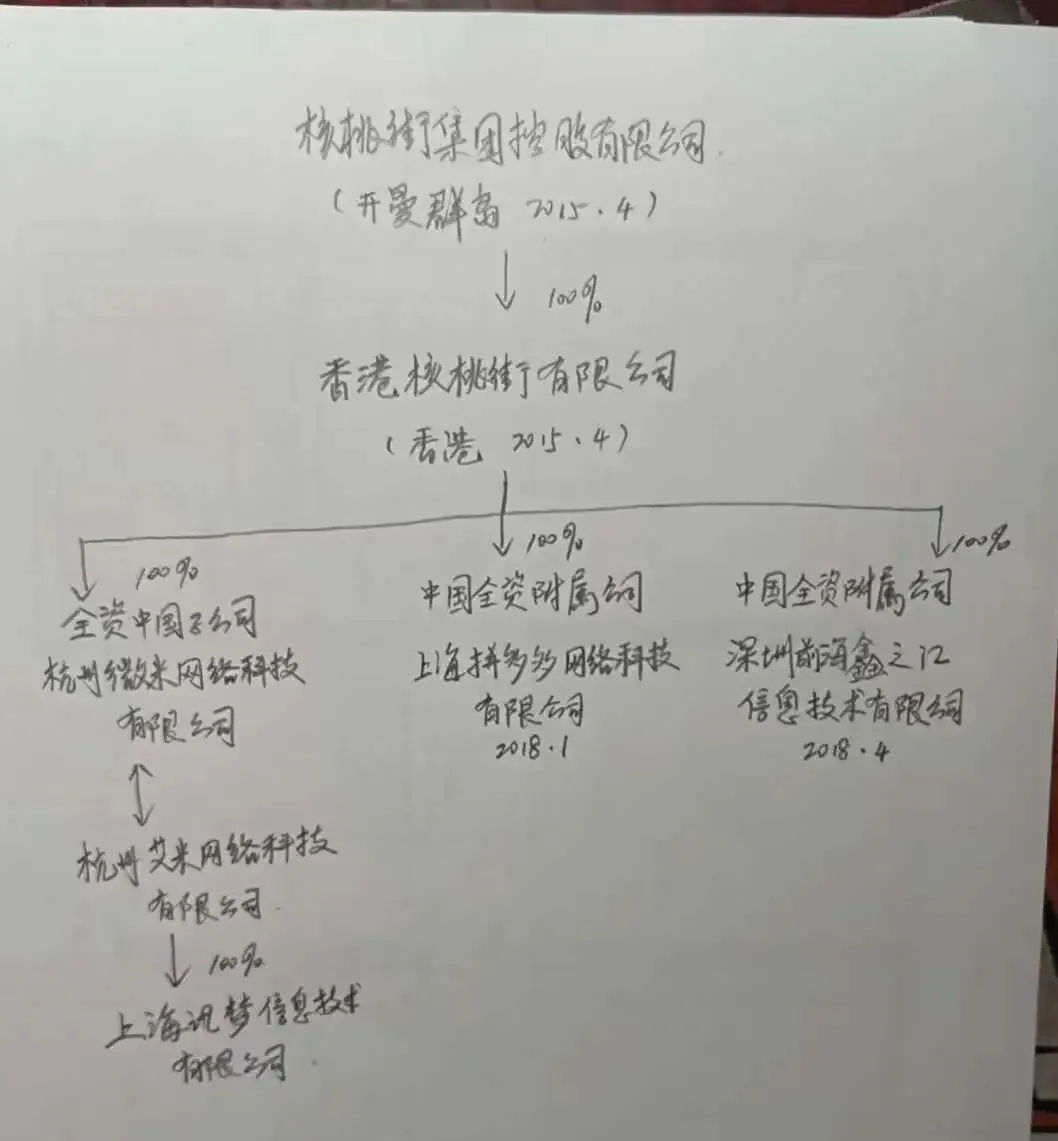 核桃街集团控股有限公司.
(开曼群岛 2015.4)
100%
香港核桃街有限公司
(香港 2015.4)
100%
全资中国子公司
杭州微米网络科技
有限公司
100%
中国全资附属公司
上海拼多多网络科技
有限公司
2018.1
100%
中国全资附属公司
深圳前海鑫之江
信息技术有限公司
2018.4
杭州艾米网络科技
有限公司.
100%
上海讯梦信息技术
有限公司.